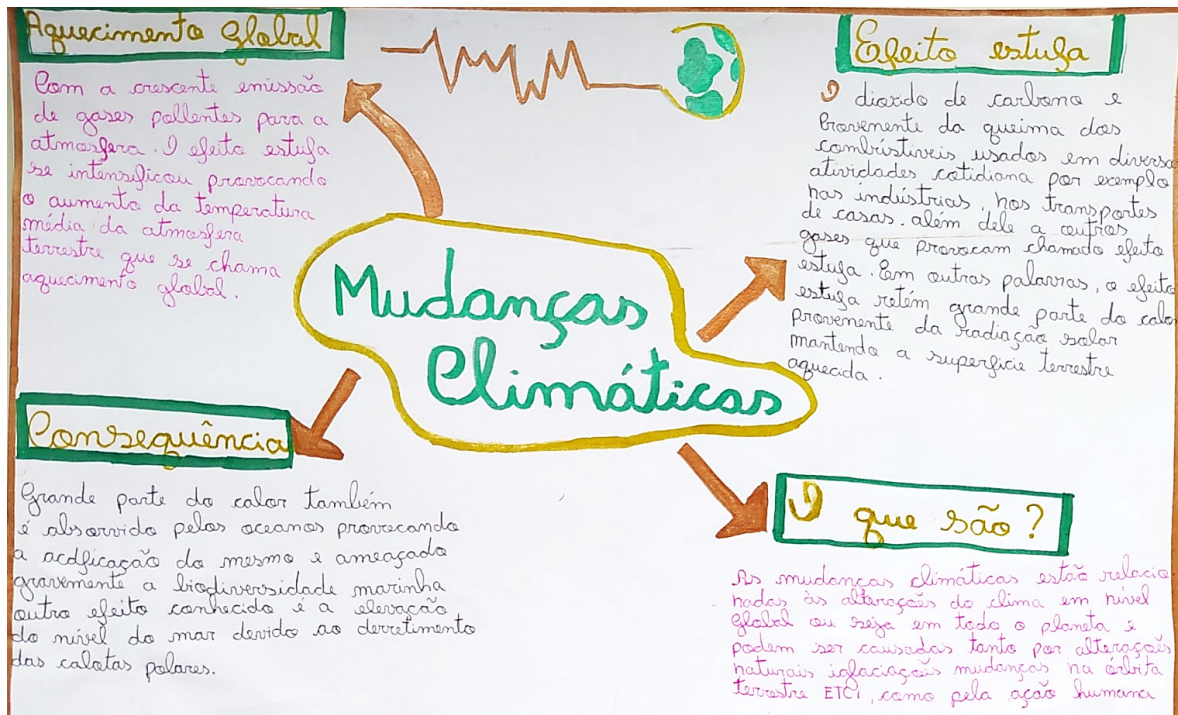 Aquecimento Global
Com a crescente emissão
de gases pollentes para a
atmosfera. O efeito estufa
se intensificou provocando
o aumento da temperatura
média da atmosfera
terrestre que se chama
aquecimento global.
Efeito estufa
O dioxido de carbono e
Provenente da queima dos
combristiveis usados em diversa
atividades cotidiana por exemplo
nas indústrias, nos transportes
de casas. além dele a outros
gases que provocam chamado efeito
estufa. Em outras palavras, o efeito
estufa retém grande parte do calor
provenente da radiação solar
mantendo a superficie terrestre
aquecida.
Mudanças
Climáticas
Consequência
Grande parte do calor também
é absorvido pelos oceanos provocando
a acdficação do mesmo e ameaçado
gravemente a biodiversidade marinha
outro efeito conhecido é a elevação
do nível do mar devido ao derretimento
das calotas polares.
O que são?
As mudanças climáticas estão relacio
nadas às alterações do clima em nível
global ou seja em todo o planeta e
podem ser causadas tanto por alterações
naturais iglaciações mudanças na órbita
terrestre ETC), como pela ação humana